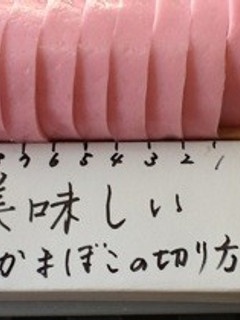 8 7 6 5 4 3 2 1
美味しい
かまぼこの切り方